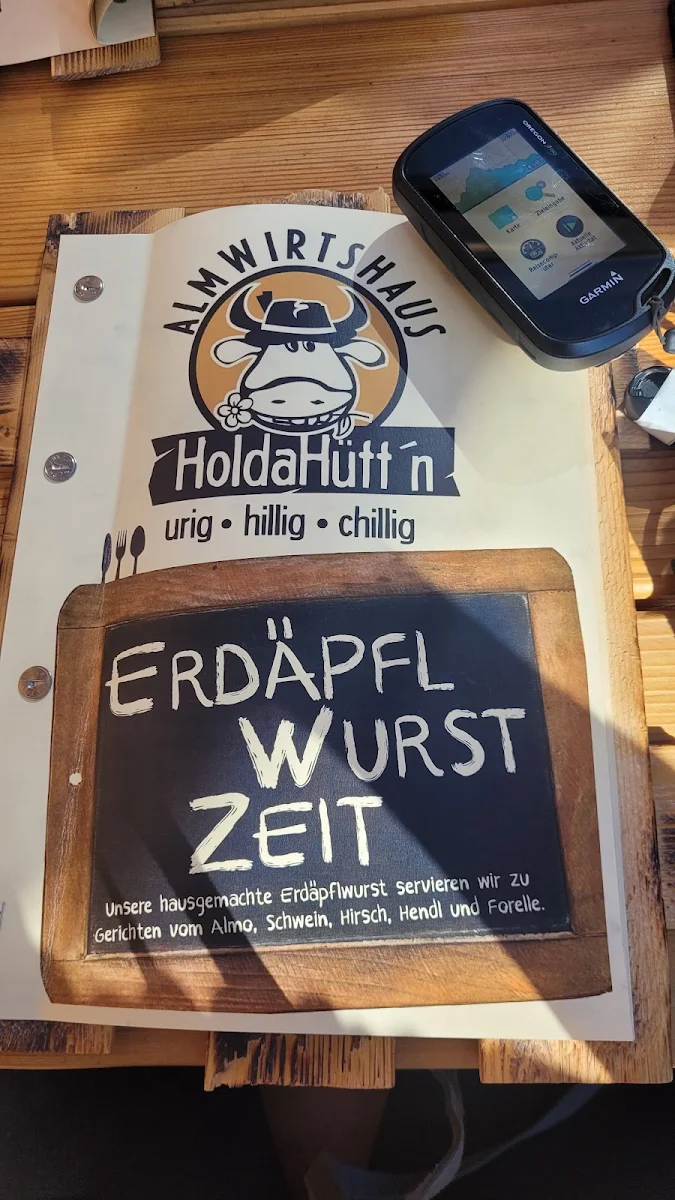 ALMWIRTSHAUS
HoldaHütt´n
urig • hillig • chillig
ERDÄPFL
WURST
ZEIT
Unsere hausgemachte Erdäpflwurst servieren wir zu
Gerichten vom Almo, Schwein, Hirsch, Hendl und Forelle.
OREGON
Karte
Zieleingabe
Reisecomp
uter
Aktuelle
Aktivität
GARMIN